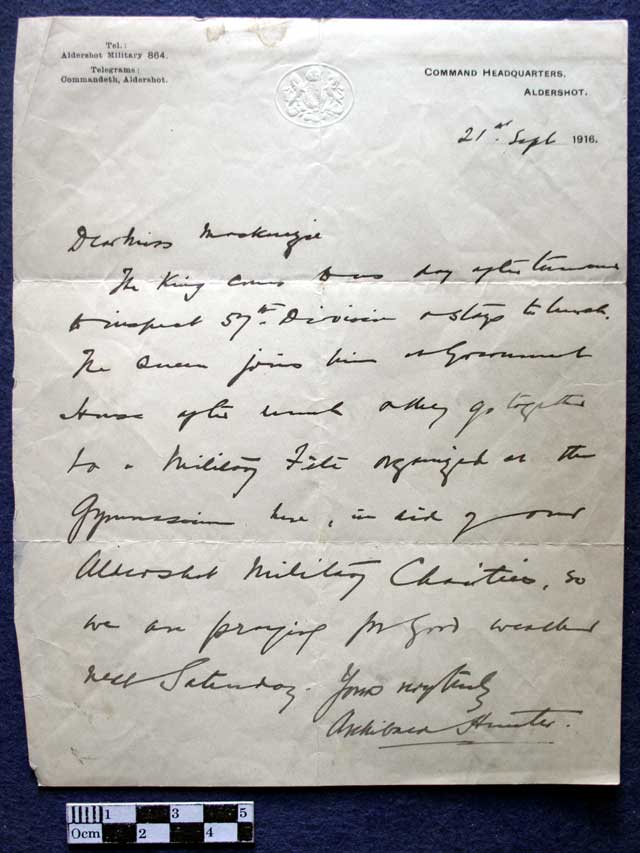 Tel.:
Aldershot Military 864.
Telegrams:
Commandeth, Aldershot.
COMMAND HEADQUARTERS,
ALDERSHOT.
21st Sept 1916.
Dear Miss Mackenzie
The King comes to us day after tomorrow
to inspect 57th Division & stays to lunch.
The Queen joins him at Government
House after lunch & they go together
to a Military Fête organized at the
Gymnasium here, in aid of our
Aldershot Military Charities, so
we are praying for good weather
next Saturday. Yours very truly
Archibald Hunter.
0cm 1 2 3 4 5